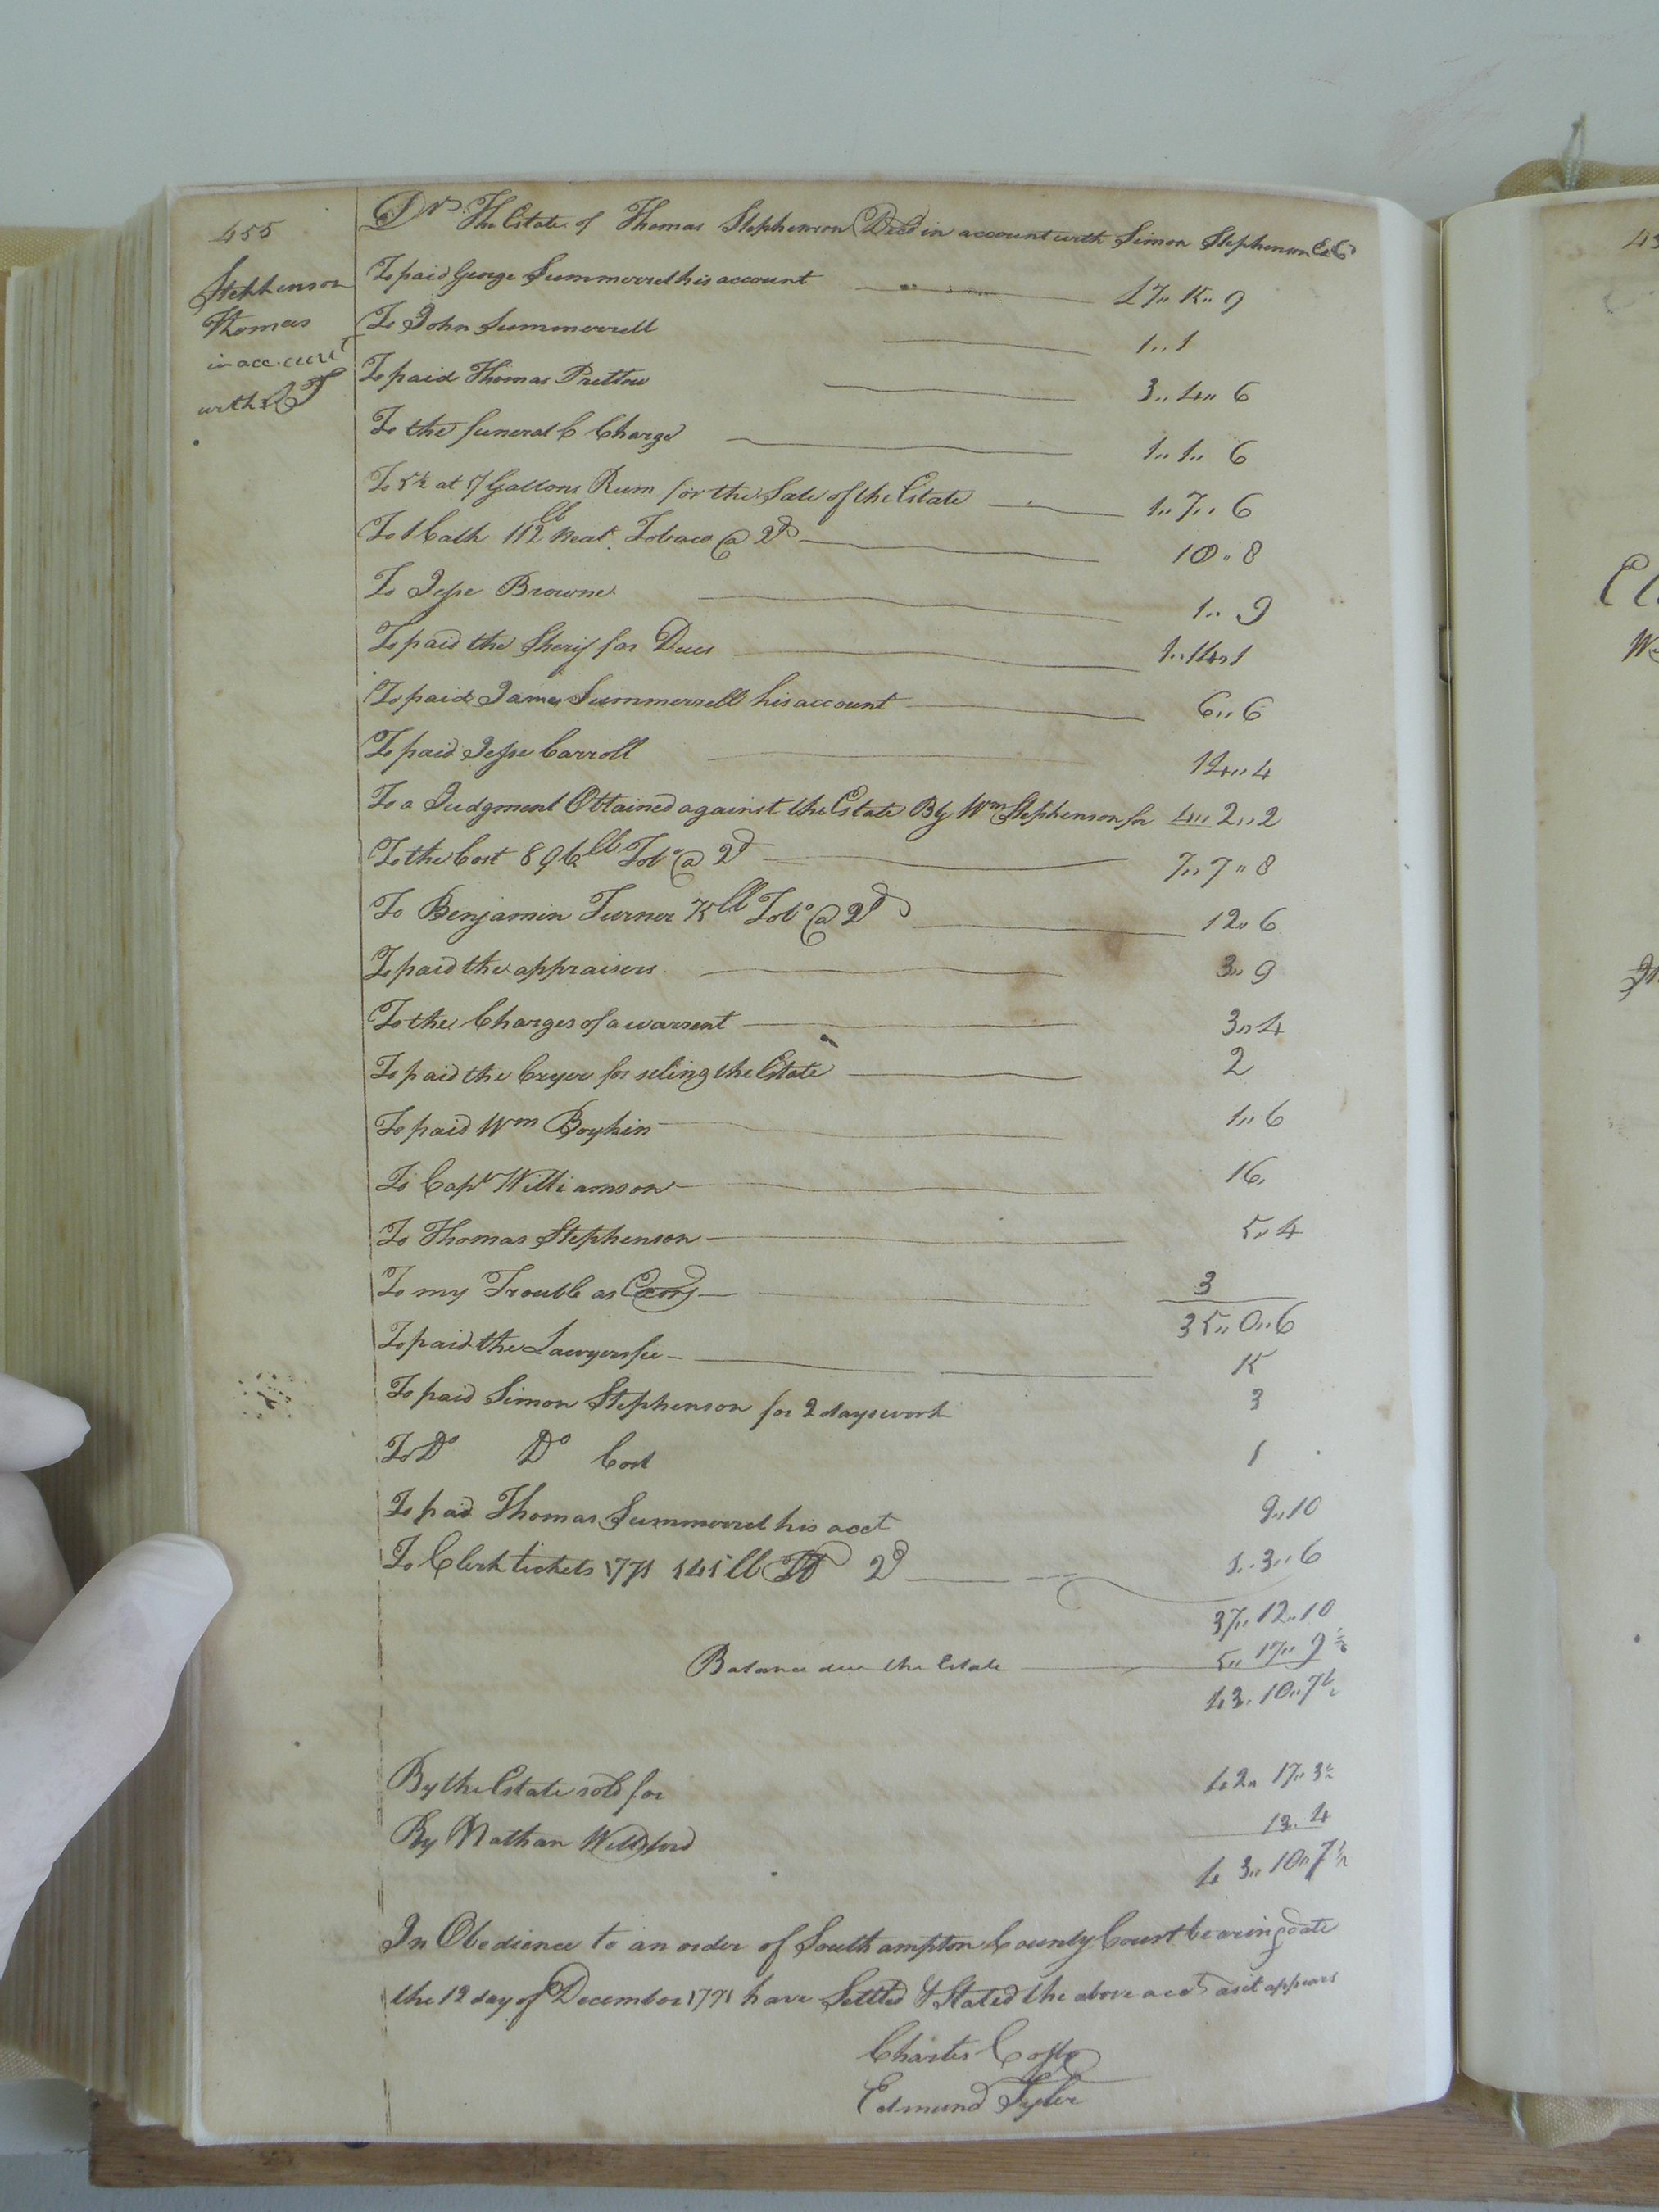 455
Stephenson
Thomas
in acc. curt
with
Dr. The Estate of Thomas Stephenson Decd in account with Simon Stephenson
To paid George Summerrel his account £7,, 15,, 9
To John Summerrell 1,, 1
To paid Thomas Prettow 3,, 4,, 6
To the funeral Charge 1,, 1,, 6
To at 5/ Gallons Rum for the Sale of the Estate 1,, 7,, 6
To 1 Cask 112 lb Neat Tobaco @ 2d 18,, 8
To Jesse Browne 1,, 9
To paid the Sherif for Dues 1,, 14,, 1
To paid James Summerrell his account 6,, 6
To paid Jesse Carroll 14,, 4
To a Judgment Obtained against the Estate By Wm Stephenson for 4,, 2,, 2
To the Cost 896 lb Tobo @ 2d 7,, 7,, 8
To Benjamin Turner 75 lb Tobo @ 2d 12,, 6
To paid the appraisers 3,, 9
To the Charges of a warrent 3,, 4
To paid the Cryer for seling the Estate 2
To paid Wm Boykin 1,, 6
To Capt Williamson 16,
To Thomas Stephenson 5,, 4
To my Trouble as Exor 3
35,, 0,, 6
To paid the Lawyers fee 15
To paid Simon Stephenson for 2 days work 3
To Do Do Cost 1
To paid Thomas Summerrel his acct 9,, 10
To Clerk tickets 1771 141 lb 2d 1,, 3,, 6
37,, 12,, 10
Balance due the Estate 5,, 17,, 9½
43,, 10,, 7½
By the Estate sold for 42,, 17,, 3½
By Nathan 13,, 4
43,, 10,, 7½
In Obedience to an order of Southampton County Court bearing date
the 12 day of December 1771 have Settled & Stated the above acct as it appears
Charles
Edmund Tyler